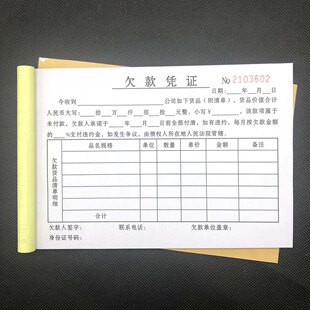 欠款凭证
No 2103602
日期:____年____月____日
今收到____________公司如下货品(附清单)、货品价值合计
人民币大写:____拾____万____仟____佰____拾____元整,小写¥________,该款项属于
未付款。欠款人承诺于____年____月____日前全部付清,如有违约,每月按欠款金额
的____%支付违约金。如发生争议,由债权人所在地人民法院管辖。
欠款货品清单明细
品名规格 单位 数量 单价 金额 备注
合计
欠款人签字: 联系电话: 欠款单位盖章:
身份证号码: